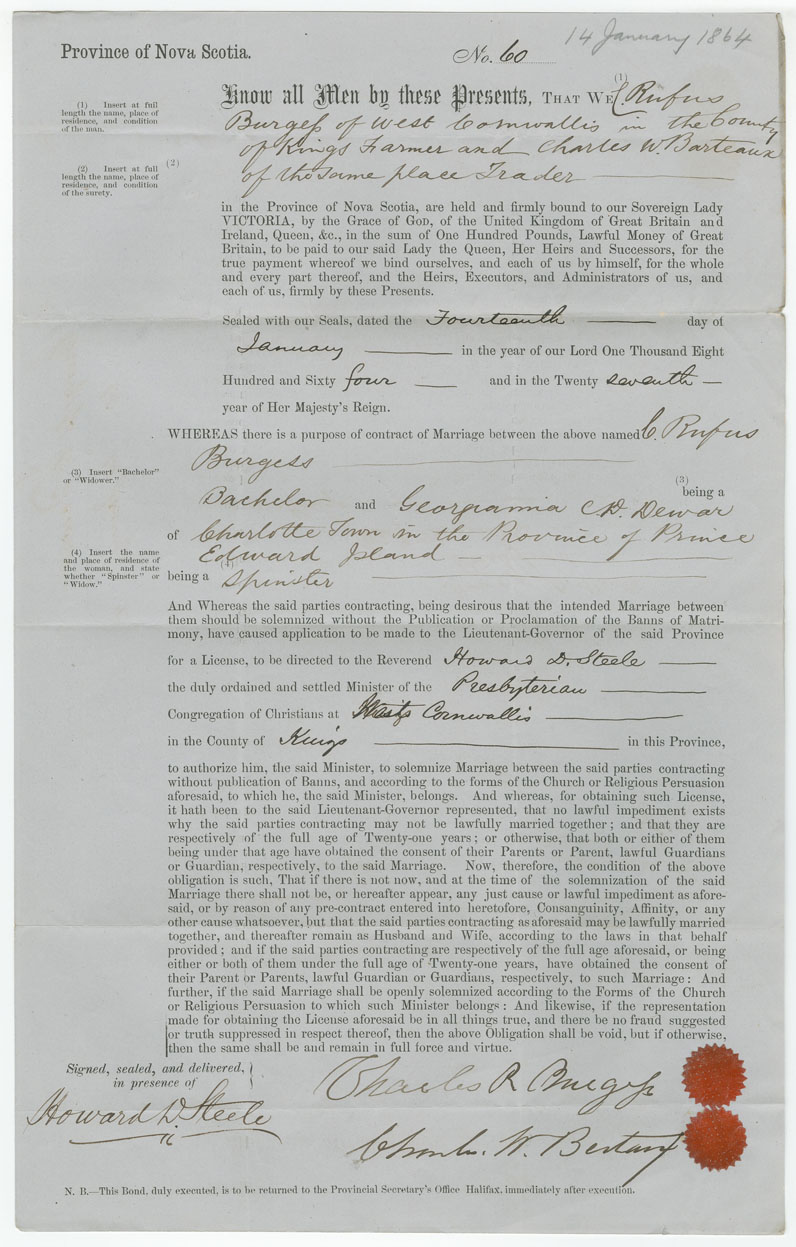 14 January 1864
Province of Nova Scotia.
No. 60
(1) Insert at full
length the name, place of
residence, and condition
of the man.
(2) Insert at full
length the name, place of
residence, and condition
of the surety.
Know all Men by these Presents, THAT WE (1) C Rufus
Burgess of West Cornwallis in the County
of Kings Farmer and Charles W. Barteaux
(2) of the same place Trader
in the Province of Nova Scotia, are held and firmly bound to our Sovereign Lady
VICTORIA, by the Grace of GOD, of the United Kingdom of Great Britain and
Ireland, Queen, &c., in the sum of One Hundred Pounds, Lawful Money of Great
Britain, to be paid to our said Lady the Queen, Her Heirs and Successors, for the
true payment whereof we bind ourselves, and each of us by himself, for the whole
and every part thereof, and the Heirs, Executors, and Administrators of us, and
each of us, firmly by these Presents.
Sealed with our Seals, dated the Fourteenth day of
January in the year of our Lord One Thousand Eight
Hundred and Sixty four and in the Twenty seventh
year of Her Majesty's Reign.
WHEREAS there is a purpose of contract of Marriage between the above named C. Rufus
Burgess
(3) Insert "Bachelor"
or "Widower."
(3) being a
Bachelor and Georgianna C. D. Dewar
of Charlotte Town in the Province of Prince
Edward Island
(4) Insert the name
and place of residence of
the woman, and state
whether "Spinster" or
"Widow."
(4)
being a Spinster
And Whereas the said parties contracting, being desirous that the intended Marriage between
them should be solemnized without the Publication or Proclamation of the Banns of Matri-
mony, have caused application to be made to the Lieutenant-Governor of the said Province
for a License, to be directed to the Reverend Howard D. Steele
the duly ordained and settled Minister of the Presbyterian
Congregation of Christians at West Cornwallis
in the County of Kings in this Province,
to authorize him, the said Minister, to solemnize Marriage between the said parties contracting
without publication of Banns, and according to the forms of the Church or Religious Persuasion
aforesaid, to which he, the said Minister, belongs. And whereas, for obtaining such License,
it hath been to the said Lieutenant-Governor represented, that no lawful impediment exists
why the said parties contracting may not be lawfully married together; and that they are
respectively of the full age of Twenty-one years; or otherwise, that both or either of them
being under that age have obtained the consent of their Parents or Parent, lawful Guardians
or Guardian, respectively, to the said Marriage. Now, therefore, the condition of the above
obligation is such, That if there is not now, and at the time of the solemnization of the said
Marriage there shall not be, or hereafter appear, any just cause or lawful impediment as afore-
said, or by reason of any pre-contract entered into heretofore, Consanguinity, Affinity, or any
other cause whatsoever, but that the said parties contracting as aforesaid may be lawfully married
together, and thereafter remain as Husband and Wife, according to the laws in that behalf
provided; and if the said parties contracting are respectively of the full age aforesaid, or being
either or both of them under the full age of Twenty-one years, have obtained the consent of
their Parent or Parents, lawful Guardian or Guardians, respectively, to such Marriage: And
further, if the said Marriage shall be openly solemnized according to the Forms of the Church
or Religious Persuasion to which such Minister belongs: And likewise, if the representation
made for obtaining the License aforesaid be in all things true, and there be no fraud suggested
or truth suppressed in respect thereof, then the above Obligation shall be void, but if otherwise,
then the same shall be and remain in full force and virtue.
Signed, sealed, and delivered,
in presence of
Howard D. Steele
Charles R Burgess
Charles. W.
N. B.—This Bond, duly executed, is to be returned to the Provincial Secretary's Office Halifax, immediately after execution.